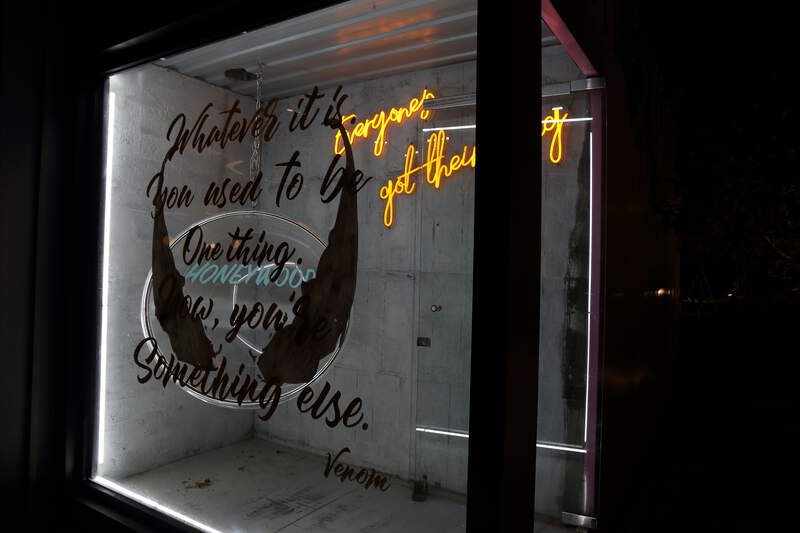 Whatever it is.
you used to be
One thing.
Now, you're
Something else.
Venom
HONEYWOOD
Everyone's
got their